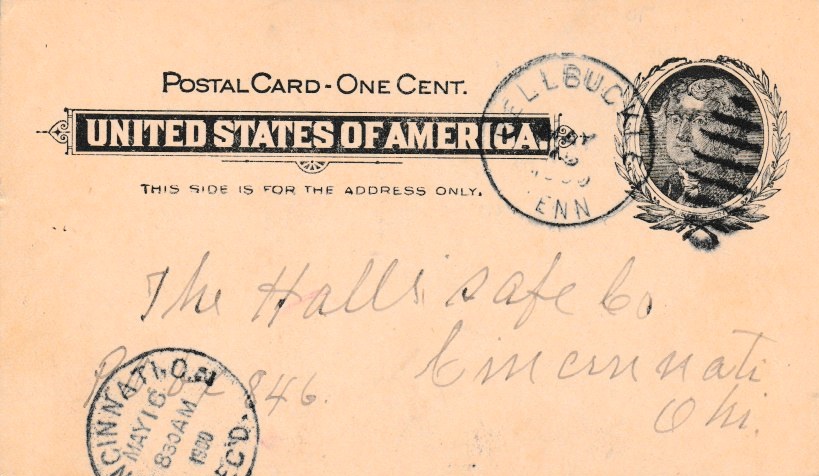 POSTAL CARD - ONE CENT.
UNITED STATES OF AMERICA.
THIS SIDE IS FOR THE ADDRESS ONLY.
BELLBUCKLE
TENN
The Hall's safe Co
Cincinnati
Ohi.
846.
CINCINNATI, O.
MAY 16
830AM
1900
REC'D.